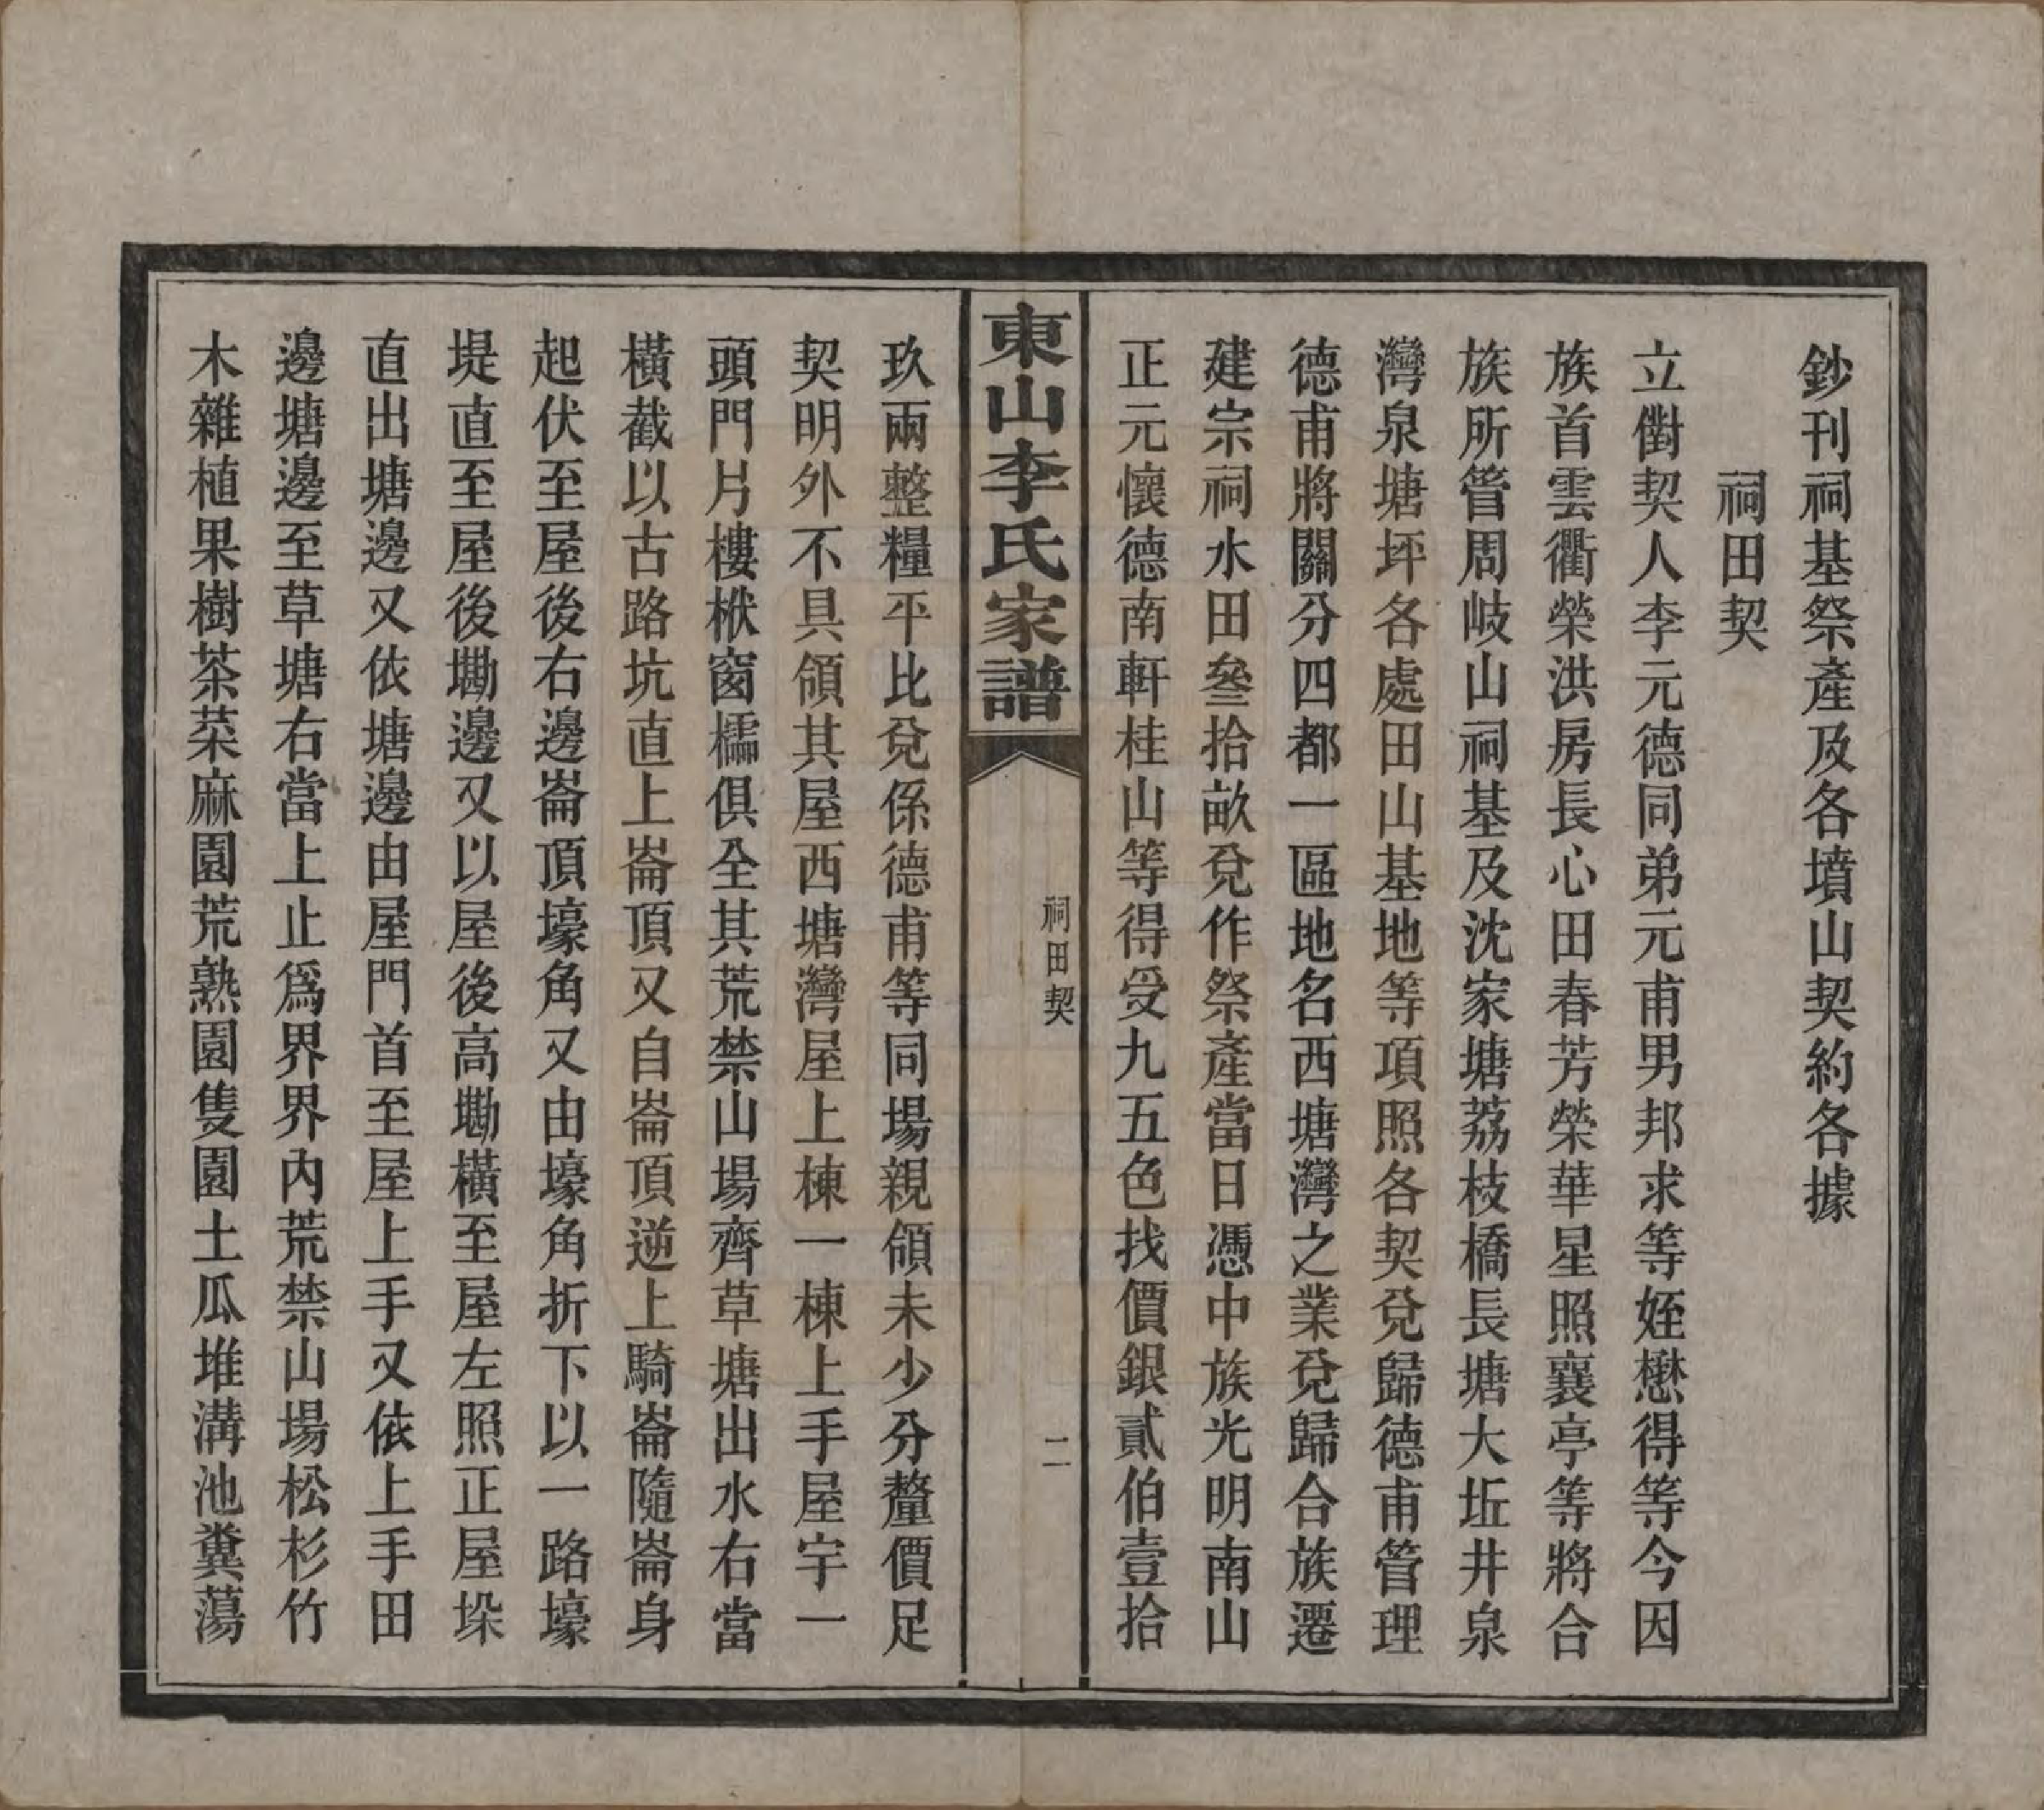 鈔刊祠基祭產及各墳山契約各據
祠田契
立儳契人李元德同弟元甫男邦求等姪懋得等今因
族首雲衢榮洪房長心田春芳榮華星照襄亭等將合
族所管周岐山祠基及沈家塘荔枝橋長塘大坵井泉
灣泉塘坪各處田山基地等項照各契兌歸德甫管理
德甫將關分四都一區地名西塘灣之業兌歸合族遷
建宗祠水田叄拾畝兌作祭產當日憑中族光明南山
正元懷德南軒桂山等得受九五色找價銀貳伯壹拾
東山李氏家譜
祠田契
二
玖兩整糧平比兌係德甫等同場親領未少分釐價足
契明外不具領其屋西塘灣屋上棟一棟上手屋宇一
頭門片樓栿窗檽俱全其荒禁山場齊草塘出水右當
橫截以古路坑直上崙頂又自崙頂逆上騎崙隨崙身
起伏至屋後右邊崙頂壕角又由壕角折下以一路壕
堤直至屋後墈邊又以屋後高墈橫至屋左照正屋垛
直出塘邊又依塘邊由屋門首至屋上手又依上手田
邊塘邊至草塘右當上止爲界界內荒禁山場松杉竹
木雜植果樹茶菜麻園荒熟園隻園土瓜堆溝池糞蕩